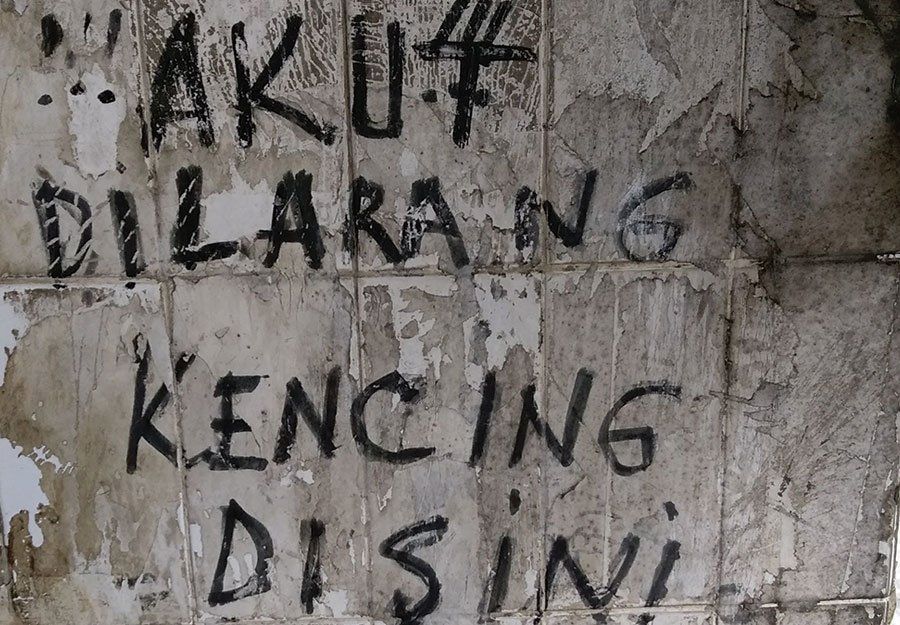 AKUT
DILARANG
KENCING
DISINI